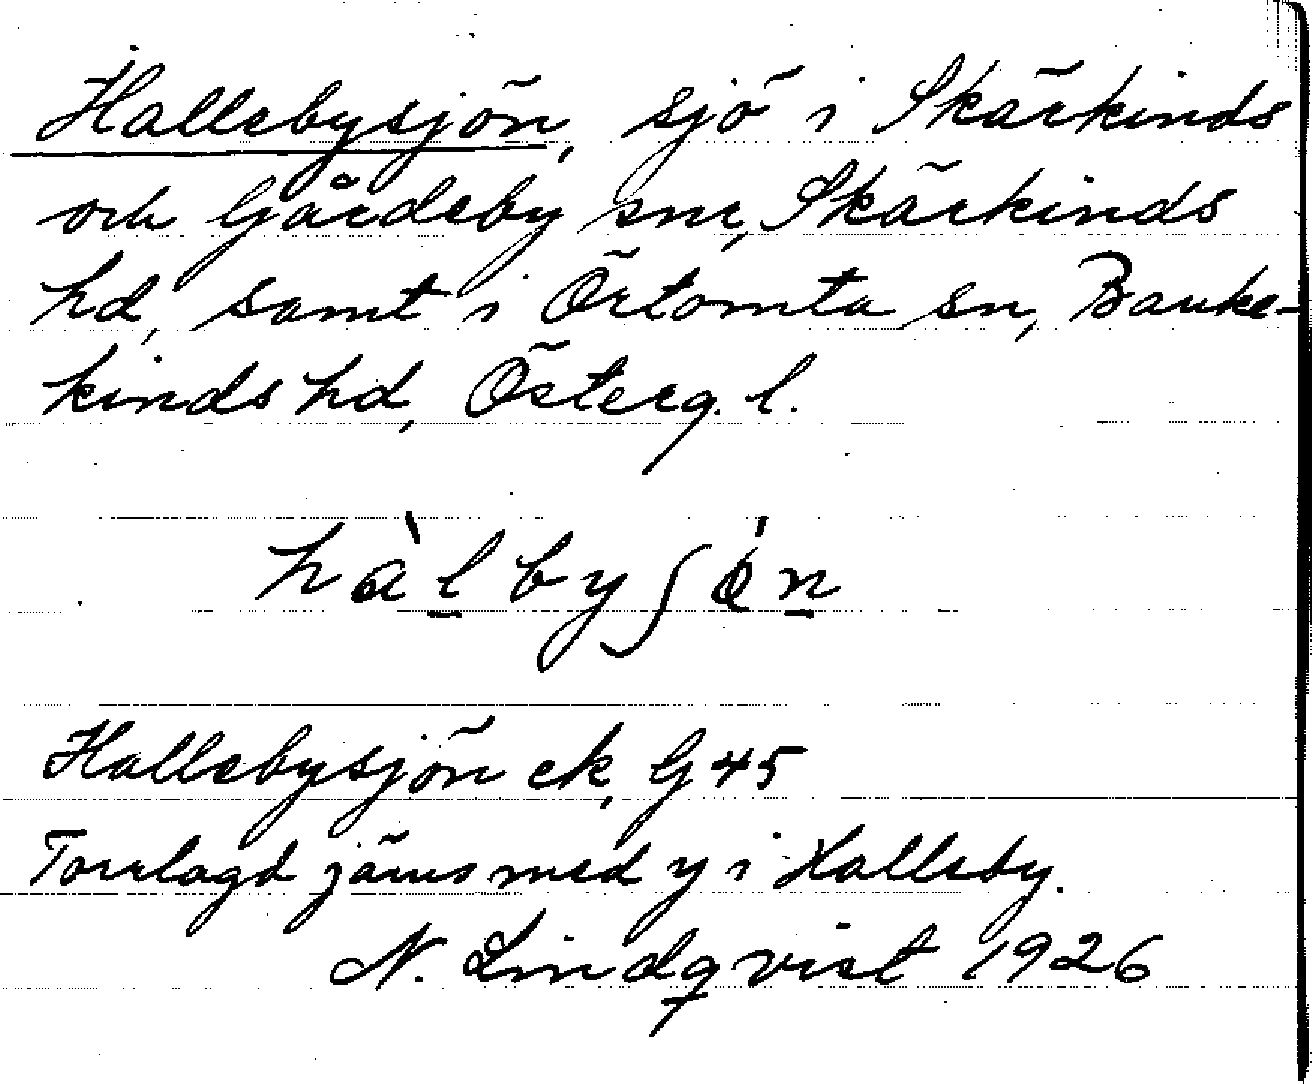 Hallebysjön, sjö i Skärkinds
och Gårdeby snr, Skärkinds
hd, samt i Örtomta sn, Banke-
kinds hd, Österg. l.
hàlbyʃön
Hallebysjön ek, G 45
Torrlagd jäms med y i Halleby.
N. Lindqvist 1926